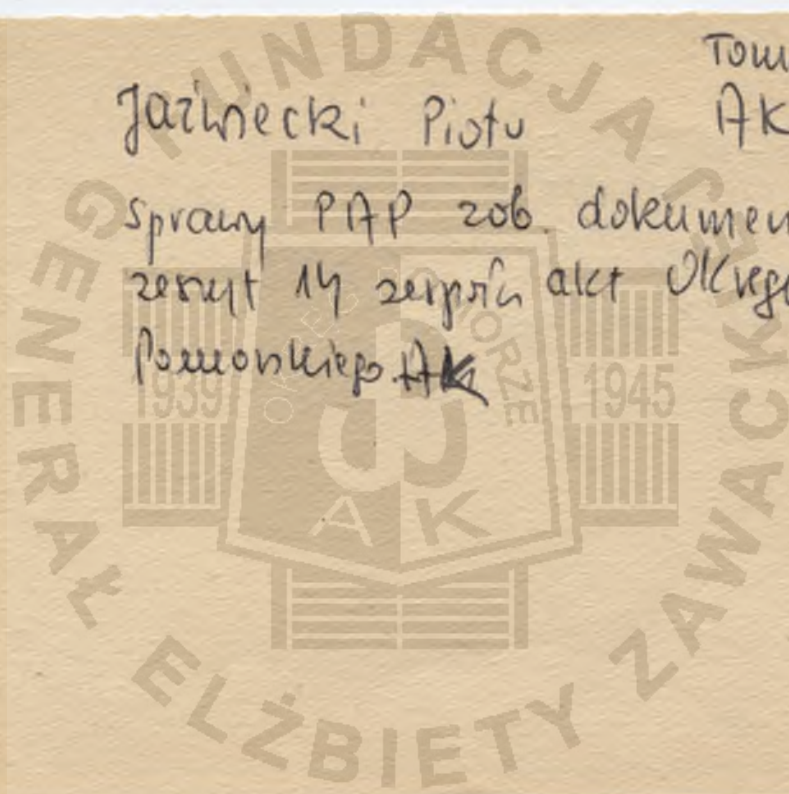 Tom
Jaźwiecki Piotr AK
sprawy PAP zob. dokumen
zeszyt 14 zespołu akt Okręgu
Pomorskiego AK
FUNDACJA GENERAŁ ELŻBIETY ZAWACKIEJ
OKRĘG POMORZE
1939 1945
AK